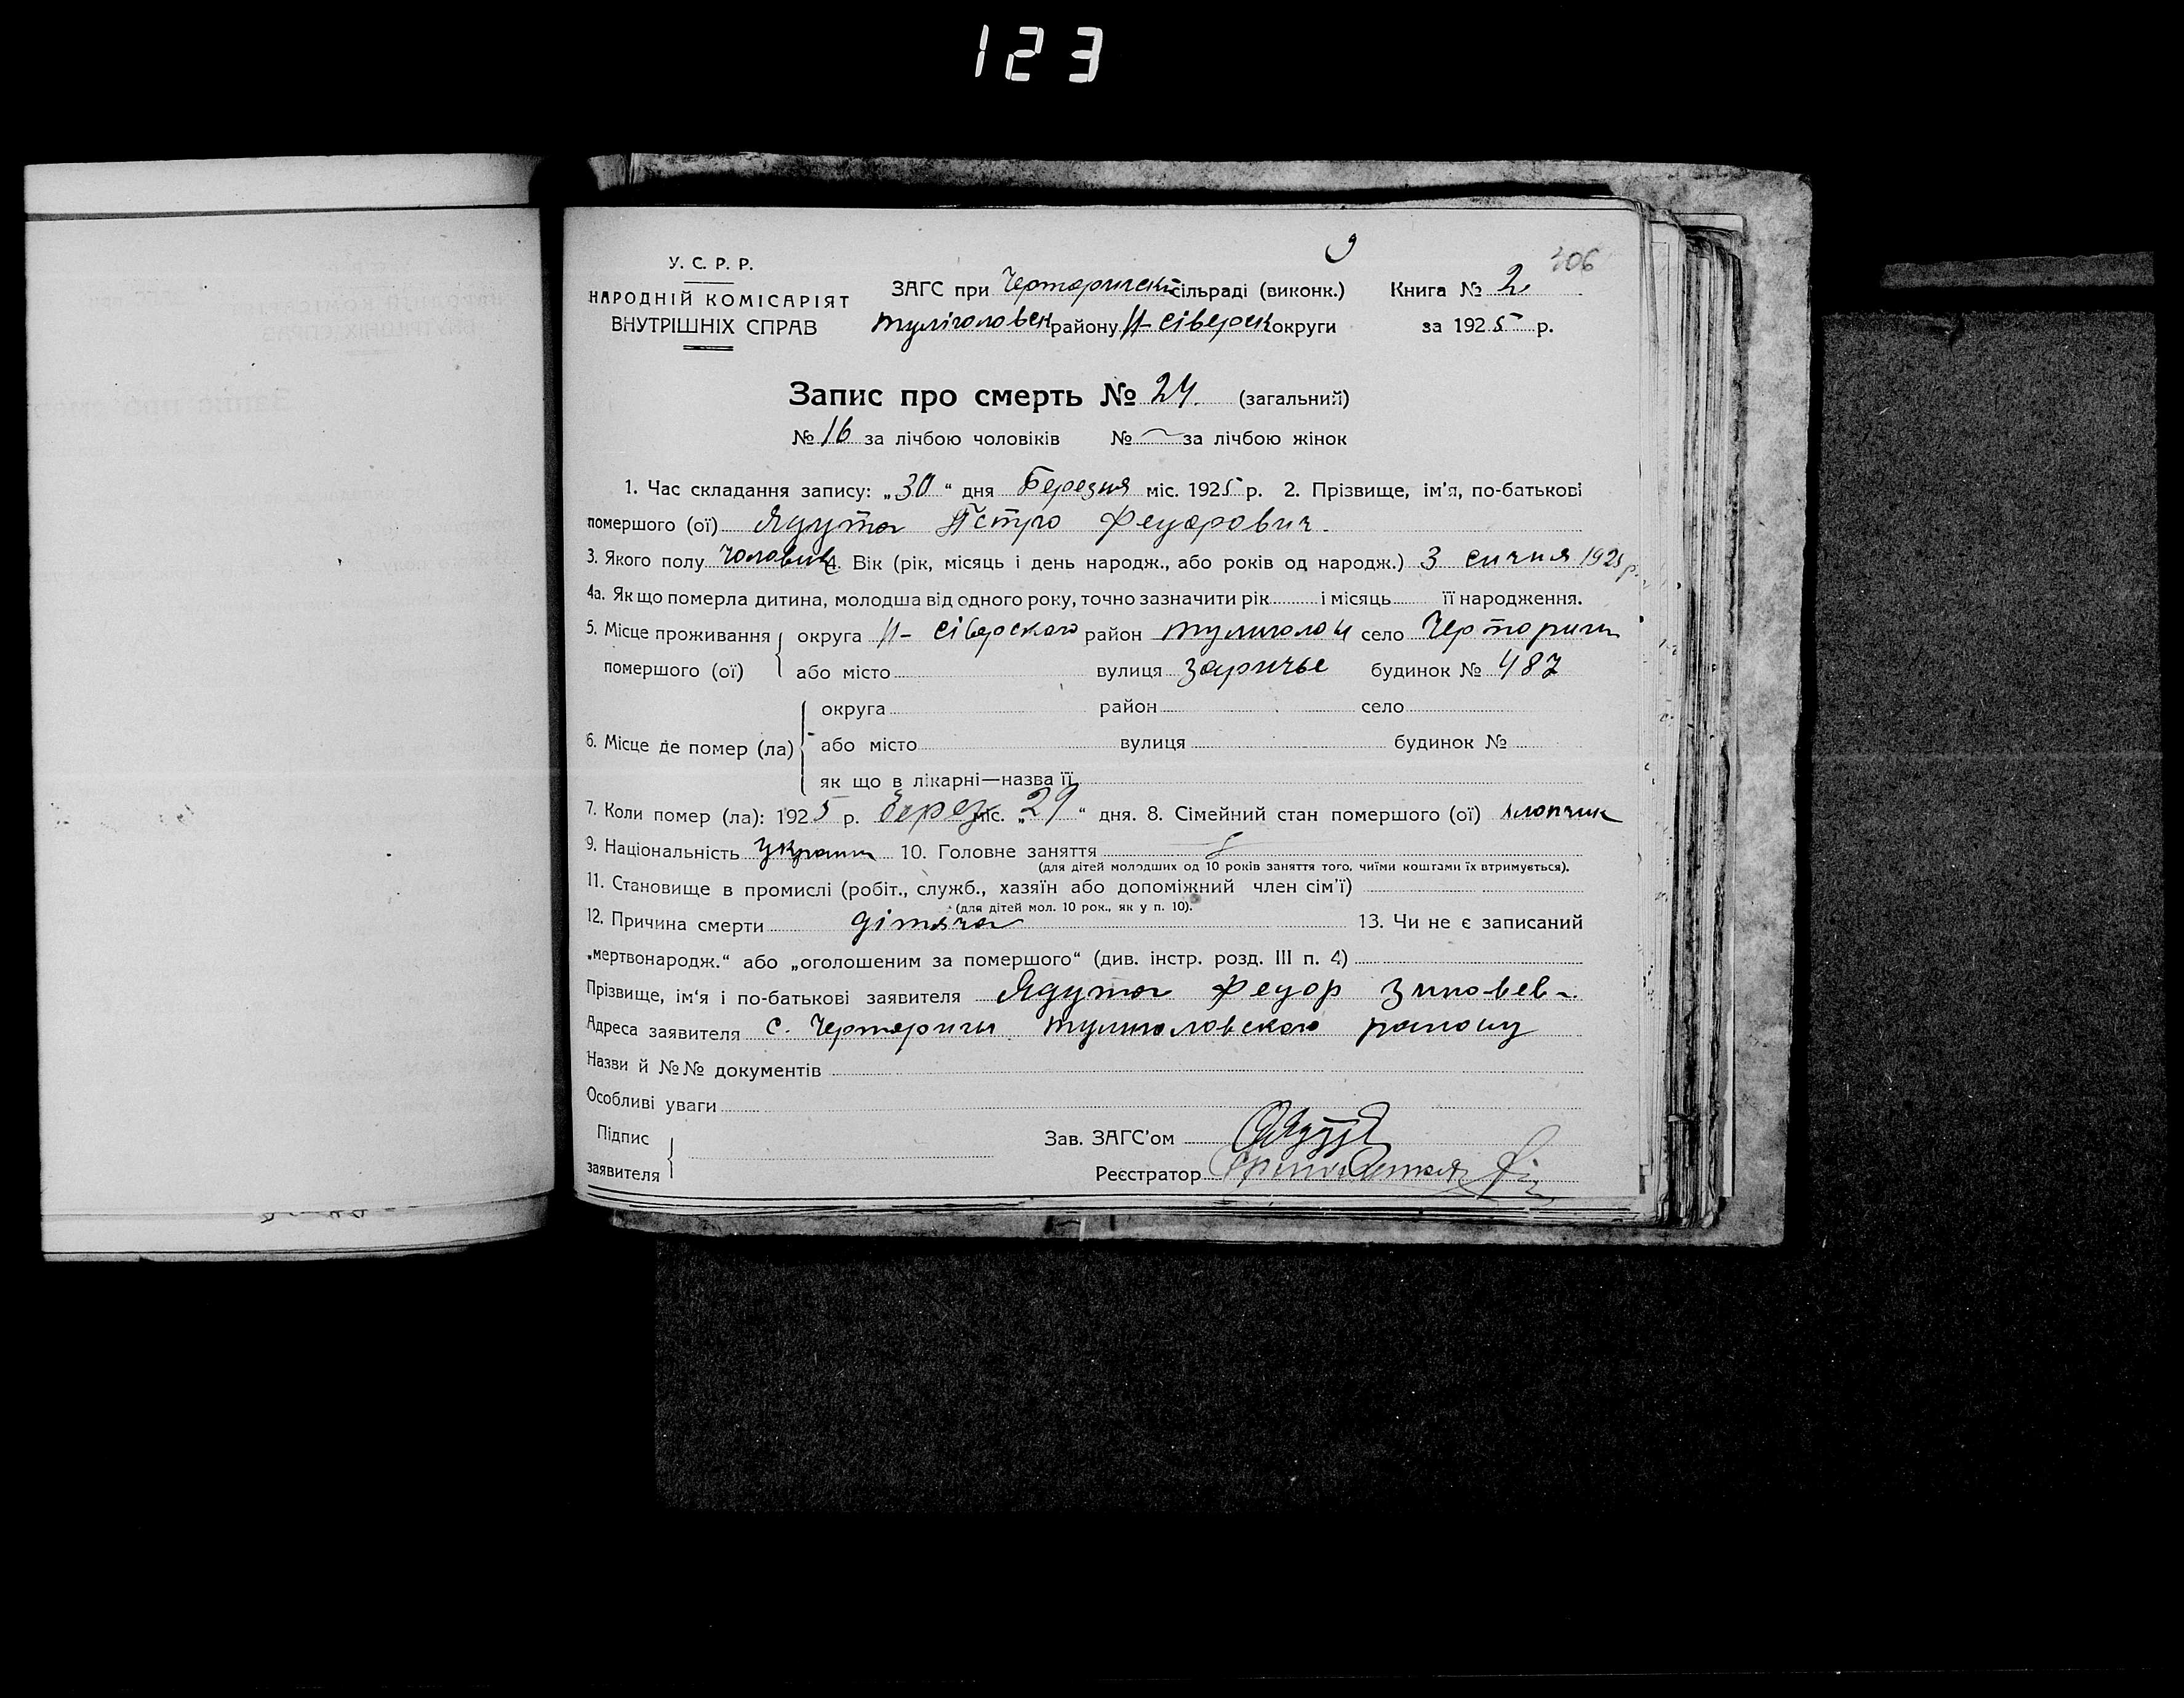 123
9
306
У. С. Р. Р.
НАРОДНІЙ КОМІСАРІЯТ
ВНУТРІШНІХ СПРАВ
ЗАГС при Чорторигск сільраді (виконк.) Книга № 2
Тулiголовск району Н-Сіверск округи за 1925 р.
Запис про смерть № 24. (загальний)
№ 16 за лічбою чоловіків № — за лічбою жінок
1. Час складання запису: „30“ дня Березня міс. 1925 р. 2. Прізвище, ім'я, по-батькові
помершого (ої) Ядута Петро Федорович.
3. Якого полу чоловик 4. Вік (рік, місяць і день народж., або років од народж.) 3 сичня 1925 р.
4а. Як що померла дитина, молодша від одного року, точно зазначити рік і місяць її народження.
5. Місце проживання округа Н- Сіверского район Тулиголов село Черториги
помершого (ої) або місто вулиця Заричье будинок № 487
округа район село
6. Місце де помер (ла) або місто вулиця будинок №
як що в лікарні—назва її
7. Коли помер (ла): 1925 р. Берез міс. „29“ дня. 8. Сімейний стан помершого (ої) хлопчик
9. Національність украин 10. Головне заняття
(для дітей молодших од 10 років заняття того, чиїми коштами їх втримується).
11. Становище в промислі (робіт., служб., хазяїн або допоміжний член сім'ї)
(для дітей мол. 10 рок., як у п. 10).
12. Причина смерти дітяча 13. Чи не є записаний
„мертвонародж.“ або „оголошеним за помершого“ (див. інстр. розд. III п. 4)
Прізвище, ім'я і по-батькові заявителя Ядута Федор Зиновев
Адреса заявителя с. Черториги Тулиголовского району
Назви й №№ документів
Особливі уваги
Підпис
заявителя
Зав. ЗАГС'ом
Реєстратор